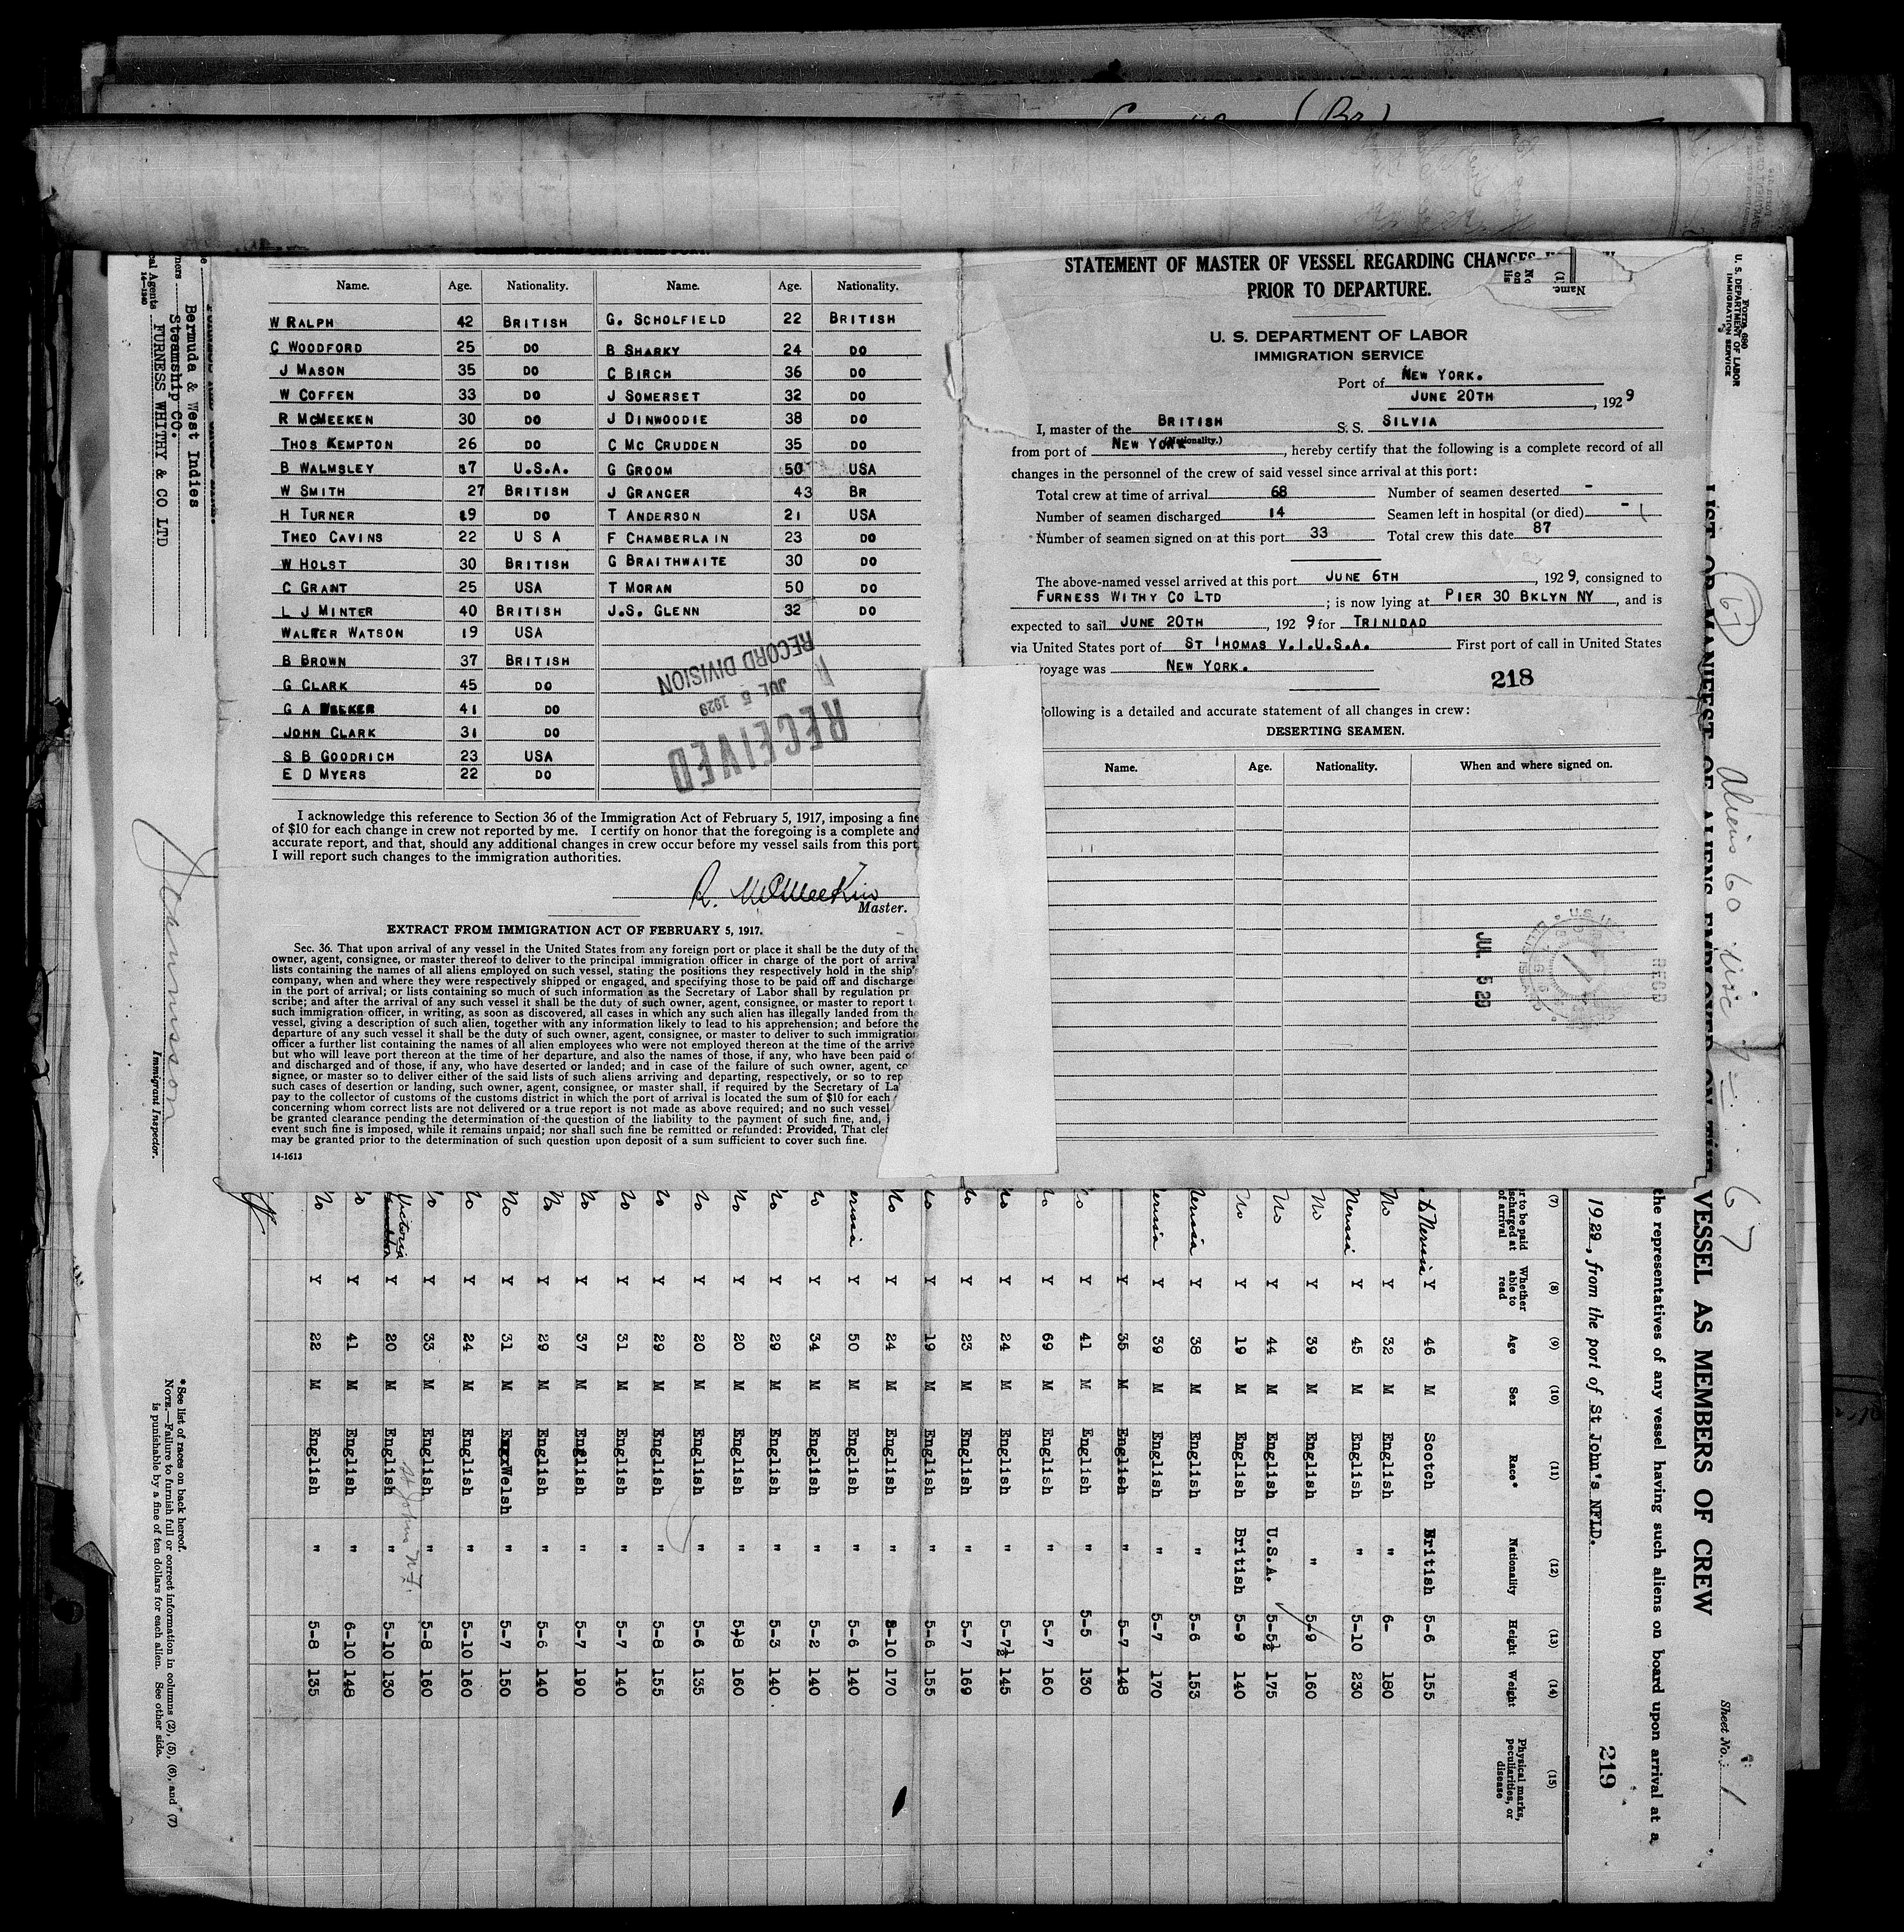 Name. Age. Nationality. Name. Age. Nationality.
W RALPH 42 BRITISH G. SCHOLFIELD 22 BRITISH
C WOODFORD 25 DO B SHARKY 24 DO
J MASON 35 DO C BIRCH 36 DO
W COFFEN 33 DO J SOMERSET 32 DO
R MCMEEKEN 30 DO J DINWOODIE 38 DO
THOS KEMPTON 26 DO C MC CRUDDEN 35 DO
B WALMSLEY 17 U.S.A. G GROOM 50 USA
W SMITH 27 BRITISH J GRANGER 43 BR
H TURNER 19 DO T ANDERSON 21 USA
THEO CAVINS 22 U S A F CHAMBERLAIN 23 DO
W HOLST 30 BRITISH G BRAITHWAITE 30 DO
C GRANT 25 USA T MORAN 50 DO
L J MINTER 40 BRITISH J.S. GLENN 32 DO
WALTER WATSON 19 USA
B BROWN 37 BRITISH
G CLARK 45 DO
G A 41 DO
JOHN CLARK 31 DO
S B GOODRICH 23 USA
E D MYERS 22 DO
RECEIVED
JUL 5 1929
RECORD DIVISION
I acknowledge this reference to Section 36 of the Immigration Act of February 5, 1917, imposing a fine
of $10 for each change in crew not reported by me. I certify on honor that the foregoing is a complete and
accurate report, and that, should any additional changes in crew occur before my vessel sails from this port
I will report such changes to the immigration authorities.
R. McMeekin
Master.
EXTRACT FROM IMMIGRATION ACT OF FEBRUARY 5, 1917.
Sec. 36. That upon arrival of any vessel in the United States from any foreign port or place it shall be the duty of the
owner, agent, consignee, or master thereof to deliver to the principal immigration officer in charge of the port of arrival
lists containing the names of all aliens employed on such vessel, stating the positions they respectively hold in the ship's
company, when and where they were respectively shipped or engaged, and specifying those to be paid off and discharge
in the port of arrival; or lists containing so much of such information as the Secretary of Labor shall by regulation pr
scribe; and after the arrival of any such vessel it shall be the duty of such owner, agent, consignee, or master to report t
such immigration officer, in writing, as soon as discovered, all cases in which any such alien has illegally landed from th
vessel, giving a description of such alien, together with any information likely to lead to his apprehension; and before the
departure of any such vessel it shall be the duty of such owner, agent, consignee, or master to deliver to such immigration
officer a further list containing the names of all alien employees who were not employed thereon at the time of the arriva
but who will leave port thereon at the time of her departure, and also the names of those, if any, who have been paid of
and discharged and of those, if any, who have deserted or landed; and in case of the failure of such owner, agent, co
signee, or master so to deliver either of the said lists of such aliens arriving and departing, respectively, or so to rep
such cases of desertion or landing, such owner, agent, consignee, or master shall, if required by the Secretary of La
pay to the collector of customs of the customs district in which the port of arrival is located the sum of $10 for each
concerning whom correct lists are not delivered or a true report is not made as above required; and no such vessel
be granted clearance pending the determination of the question of the liability to the payment of such fine, and,
event such fine is imposed, while it remains unpaid; nor shall such fine be remitted or refunded: Provided, That cle
may be granted prior to the determination of such question upon deposit of a sum sufficient to cover such fine.
14-1613
STATEMENT OF MASTER OF VESSEL REGARDING CHANGES
PRIOR TO DEPARTURE.
U. S. DEPARTMENT OF LABOR
IMMIGRATION SERVICE
Port of NEW YORK.
JUNE 20TH, 1929
I, master of the BRITISH S. S. SILVIA
(Nationality.)
from port of NEW YORK, hereby certify that the following is a complete record of all
changes in the personnel of the crew of said vessel since arrival at this port:
Total crew at time of arrival 68 Number of seamen deserted -
Number of seamen discharged 14 Seamen left in hospital (or died) -
Number of seamen signed on at this port 33 Total crew this date 87
The above-named vessel arrived at this port JUNE 6TH, 1929, consigned to
FURNESS WITHY CO LTD; is now lying at PIER 30 BKLYN NY, and is
expected to sail JUNE 20TH, 1929 for TRINIDAD
via United States port of ST THOMAS V.I.U.S.A. First port of call in United States
voyage was NEW YORK.
218
following is a detailed and accurate statement of all changes in crew:
DESERTING SEAMEN.
Name. Age. Nationality. When and where signed on.
JUL 5 29
RECD
Form 680
U. S. DEPARTMENT OF LABOR
IMMIGRATION SERVICE
Sheet No. 1
67
Aliens 60
67
LIST OR MANIFEST OF ALIENS EMPLOYED ON THE VESSEL AS MEMBERS OF CREW
the representatives of any vessel having such aliens on board upon arrival at a
1929, from the port of St John's NFLD.
219
(1) (7) (8) (9) (10) (11) (12) (13) (14) (15)
No on lis Name. r to be paid scharged at of arrival Whether able to read Age Sex Race* Nationality Height Weight Physical marks, peculiarities, or disease
to Nerissa Y 46 M Scotch British 5-6 155
No Y 32 M English " 6- 180
Nerissa Y 45 M English " 5-10 230
No Y 39 M English " 5-9 160
No Y 44 M English U.S.A. 5-5½ 175
No Y 19 M English British 5-9 140
Nerissa Y 38 M English " 5-6 153
Nerissa Y 39 M English " 5-7 170
Y 35 M English " 5-7 148
No Y 41 M English " 5-5 130
No Y 69 M English " 5-7 160
No Y 24 M English " 5-7½ 145
No Y 23 M English " 5-7 169
No Y 19 M English " 5-6 155
No Y 24 M English " 5-10 170
erissa Y 50 M English " 5-6 140
No Y 34 M English " 5-2 140
No Y 29 M English " 5-3 140
No Y 20 M English " 5-8 160
No Y 20 M English " 5-6 135
No Y 29 M English " 5-8 155
No Y 31 M English " 5-7 140
No Y 37 M English " 5-7 190
No Y 29 M English " 5-6 140
No Y 31 M Welsh " 5-7 150
No Y 24 M English " 5-10 160
No Y 33 M English " 5-8 160
Victoria Y 20 M English " 5-10 130
St Johns N.F.
No Y 41 M English " 6-10 148
No Y 22 M English " 5-8 135
Bermuda & West Indies
Steamship CO.
cal Agents FURNESS WHITHY & CO LTD
14-1240
Immigrant Inspector.
* See list of races on back hereof.
NOTE.—Failure to furnish full or correct information in columns (2), (5), (6), and (7)
is punishable by a fine of ten dollars for each alien. See other side.